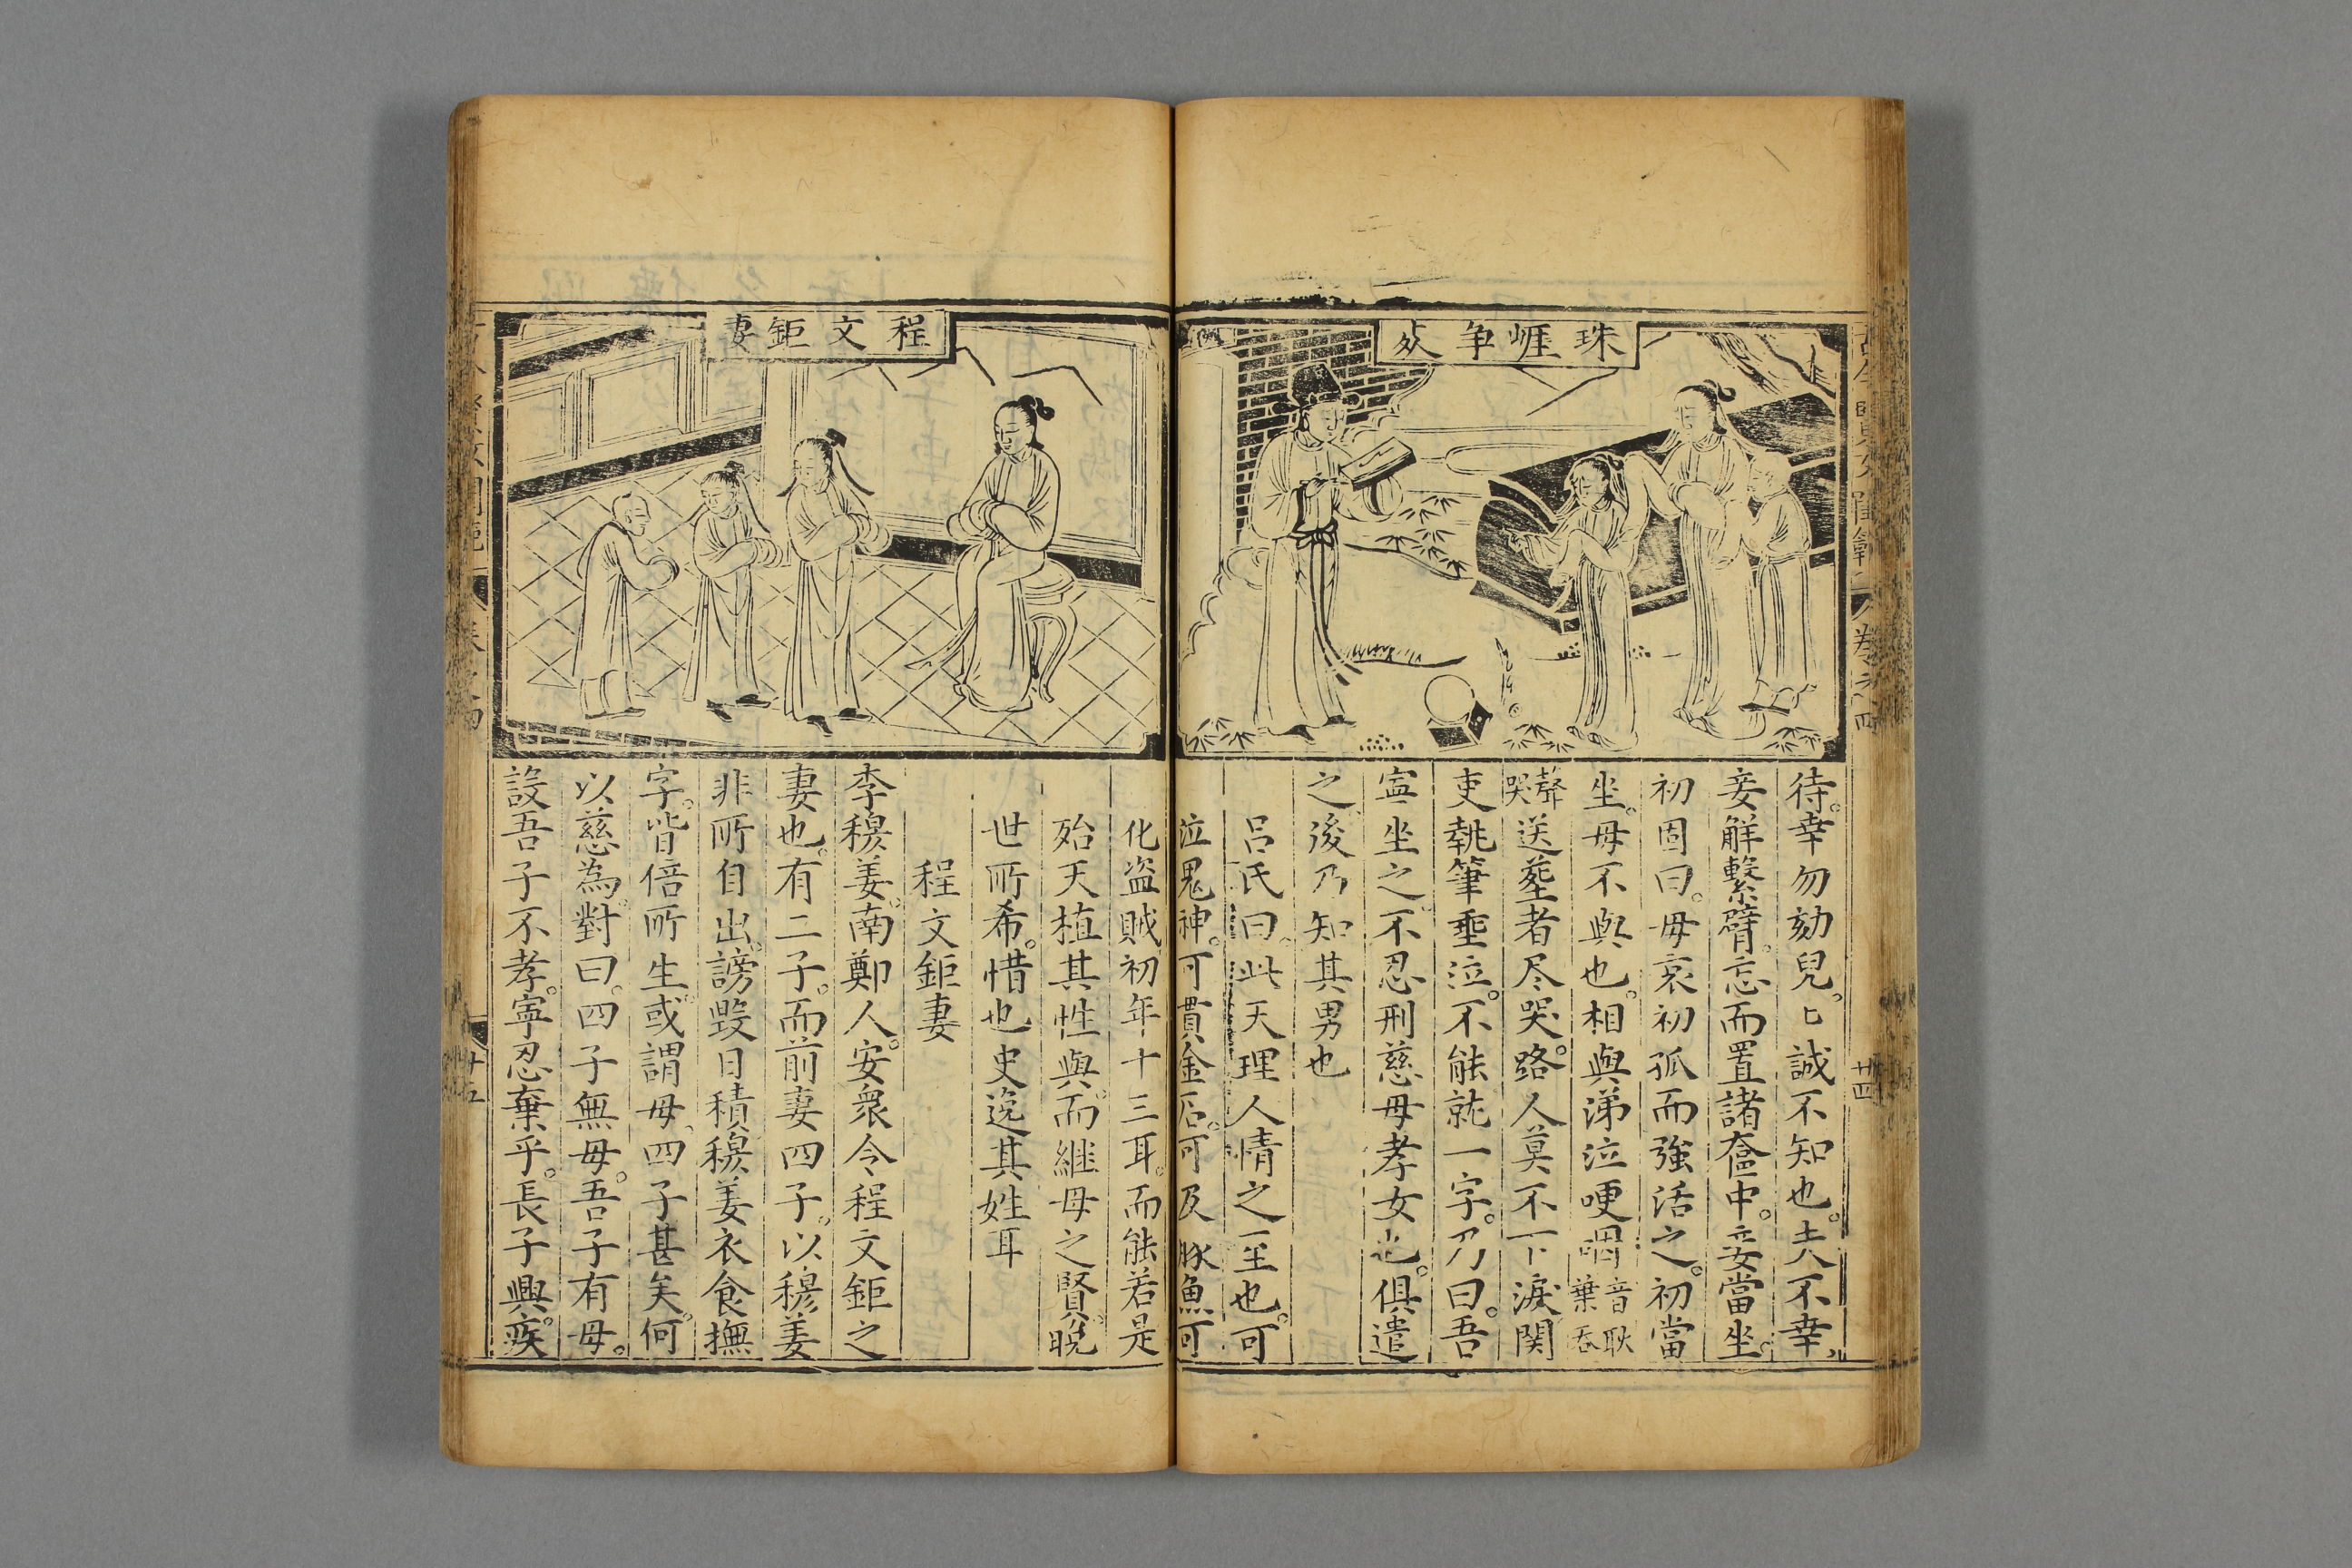 珠崕争死
待。幸勿劾兒。匕誠不知也。夫人不幸。
妾解繫臂。忘而置諸奩中。妾當坐。
初固曰。毋哀初孤而強活之。初當
坐。母不與也。相與涕泣哽咽音耿葉吞
哭聲送塟者尽哭。路人莫不下淚関
吏執筆垂泣。不能就一字。乃曰。吾
寕坐之。不忍刑慈母孝女也。俱遣
之。後乃知其男也
呂氏曰。此天理人情之至也。可
泣鬼神。可貫金石。可及豚魚可
卄四
程文鉅妻
化盗賊初年十三耳。而能若是
殆天植其性與。而継母之賢。晩
世所希。惜也史逸其姓耳
程文鉅妻
李穆姜。南鄭人。安衆令程文鉅之
妻也。有二子。而前妻四子。以穆姜
非所自出。謗毀日積穆姜衣食撫
字。皆倍所生。或謂母。四子甚矣。何
以慈為。對曰。四子無母。吾子有母。
設吾子不孝。寕忍棄乎。長子興疾。
卄五